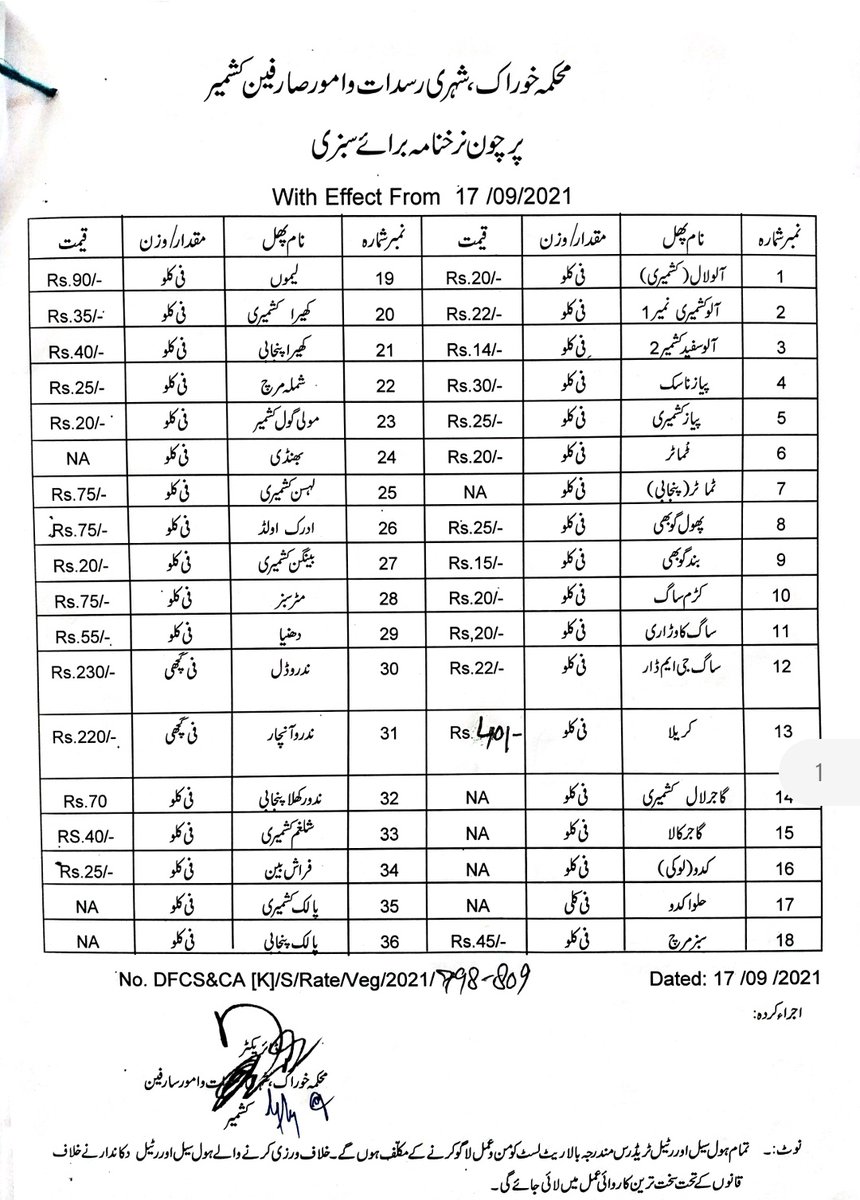 محکمہ خوراک، شہری رسدات و امور صارفین کشمیر
پرچون نرخنامہ برائے سبزی
With Effect From 17 /09/2021
نمبر شمارہ نام پھل مقدار/وزن قیمت نمبر شمارہ نام پھل مقدار/وزن قیمت
1 آلولال (کشمیری) فی کلو Rs.20/- 19 لیموں فی کلو Rs.90/-
2 آلو کشمیری نمبر 1 فی کلو Rs.22/- 20 کھیرا کشمیری فی کلو Rs.35/-
3 آلو سفید کشمیر 2 فی کلو Rs.14/- 21 کھیرا پنجابی فی کلو Rs.40/-
4 پیاز ناسک فی کلو Rs.30/- 22 شملہ مرچ فی کلو Rs.25/-
5 پیاز کشمیری فی کلو Rs.25/- 23 مولی گول کشمیر فی کلو Rs.20/-
6 ٹماٹر فی کلو Rs.20/- 24 بھنڈی فی کلو NA
7 ٹماٹر (پنجابی) فی کلو NA 25 لہسن کشمیری فی کلو Rs.75/-
8 پھول گوبھی فی کلو Rs.25/- 26 ادرک اولڈ فی کلو Rs.75/-
9 بند گوبھی فی کلو Rs.15/- 27 بینگن کشمیری فی کلو Rs.20/-
10 کڑم ساگ فی کلو Rs.20/- 28 مٹر سبز فی کلو Rs.75/-
11 ساگ کاوڈاری فی کلو Rs,20/- 29 دھنیا فی کلو Rs.55/-
12 ساگ جی ایم ڈار فی کلو Rs.22/- 30 ندرو ڈل فی گچھی Rs.230/-
13 کریلا فی کلو Rs.40/- 31 ندرو آنچار فی گچھی Rs.220/-
14 گاجر لال کشمیری فی کلو NA 32 ندور کھلا پنجابی فی کلو Rs.70
15 گاجر کالا فی کلو NA 33 شلغم کشمیری فی کلو RS.40/-
16 کدو (لوکی) فی کلو NA 34 فراش بین فی کلو Rs.25/-
17 حلوا کدو فی کلی NA 35 پالک کشمیری فی کلو NA
18 سبز مرچ فی کلو Rs.45/- 36 پالک پنجابی فی کلو NA
No. DFCS&CA [K]/S/Rate/Veg/2021/798-809 Dated: 17 /09 /2021
اجراء کردہ:
ڈائریکٹر
محکمہ خوراک، شہری رسدات و امور سارفین
کشمیر
نوٹ:۔ تمام ہول سیل اور رٹیل ٹریڈرس مندرجہ بالا ریٹ لسٹ کو من و عمل لاگو کرنے کے مکلّف ہوں گے۔ خلاف ورزی کرنے والے ہول سیل اور رٹیل دکاندار نے خلاف
قانون کے تحت سخت ترین کاروائی عمل میں لائی جائے گی۔
1